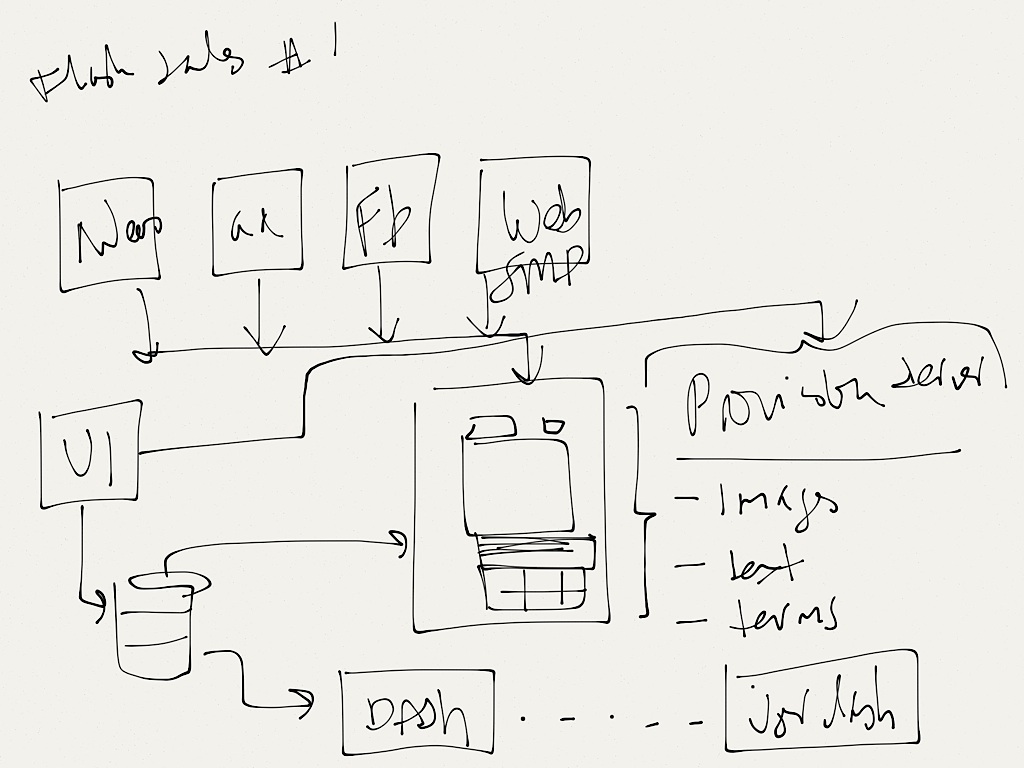 Flash sales # 1
News
ax
Fb
Web
SMP
UI
Provision server
- Images
- text
- terms
DASH